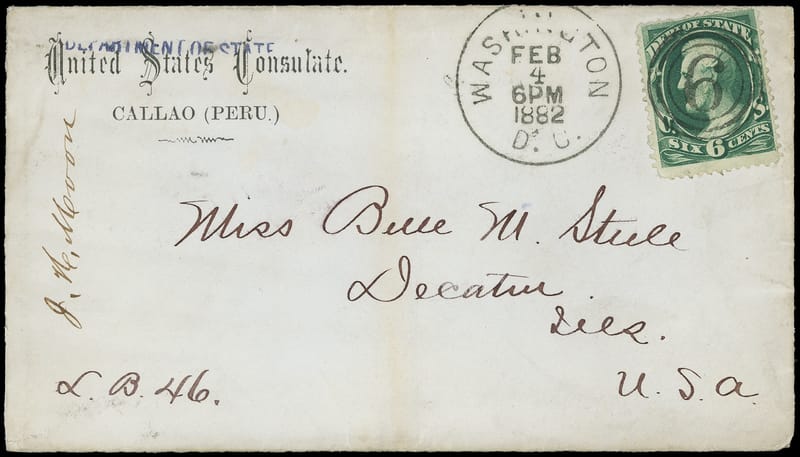 DEPARTMENT OF STATE
United States Consulate.
CALLAO (PERU.)
WASHINGTON
FEB
4
6PM
1882
D. C.
DEPT. OF STATE
6
U. S.
SIX 6 CENTS
J. H. Moon
Miss Belle M. Steele
Decatur
Ills.
U. S. A.
L. B. 46.